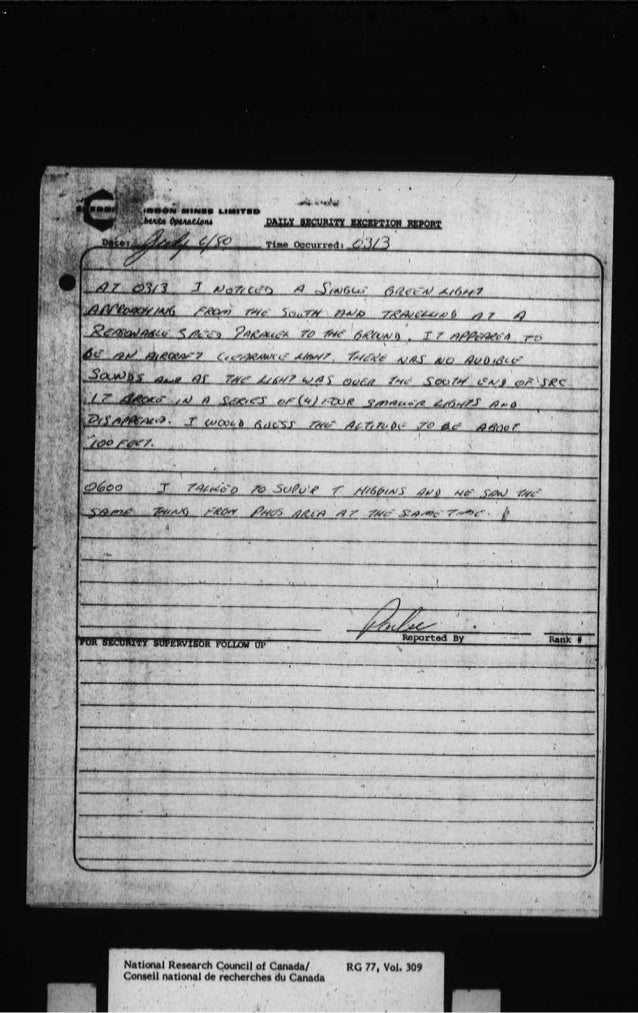 MINES LIMITED
Operations
DAILY SECURITY EXCEPTION REPORT
Date: July 6/80 Time Occurred: 0313
AT 0313 I NOTICED A SINGLE GREEN LIGHT
APPROACHING FROM THE SOUTH AND TRAVELLING AT A
REASONABLE SPEED PARALLEL TO THE GROUND. IT APPEARED TO
BE AN AIRCRAFT CLEARANCE LIGHT. THERE WAS NO AUDIBLE
SOUNDS AND AS THE LIGHT WAS OVER THE SOUTH END OF SRC
IT BROKE IN A SERIES OF (4) FOUR SMALLER LIGHTS AND
DISAPPEARED. I WOULD GUESS THE ALTITUDE TO BE ABOUT
100 FEET.
0600 I TALKED TO SUPV'R T. HIGGINS AND HE SAW THE
SAME THING FROM PHOS AREA AT THE SAME TIME.
Reported By Rank #
FOR SECURITY SUPERVISOR FOLLOW UP
National Research Council of Canada/ RG 77, Vol. 309
Conseil national de recherches du Canada